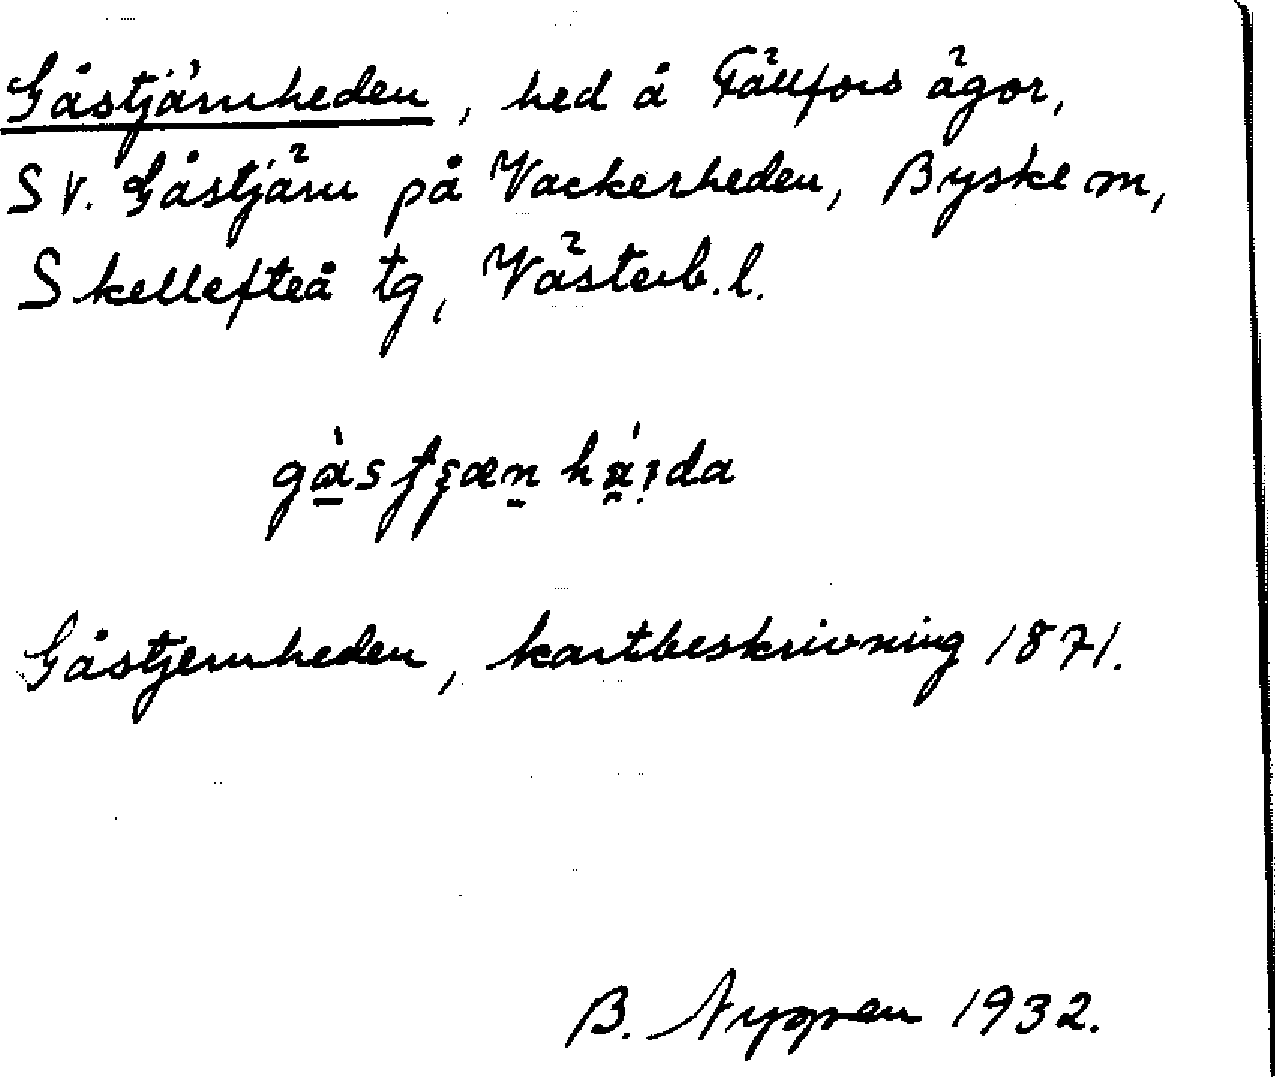 Gåstjärnheden, hed å Fällfors ägor,
SV. Gåstjärn på Vackerheden, Byske sn,
Skellefteå tg, Västerb. l.
Gåstjernheden, kartbeskrivning 1871.
B. Nyppen 1932.